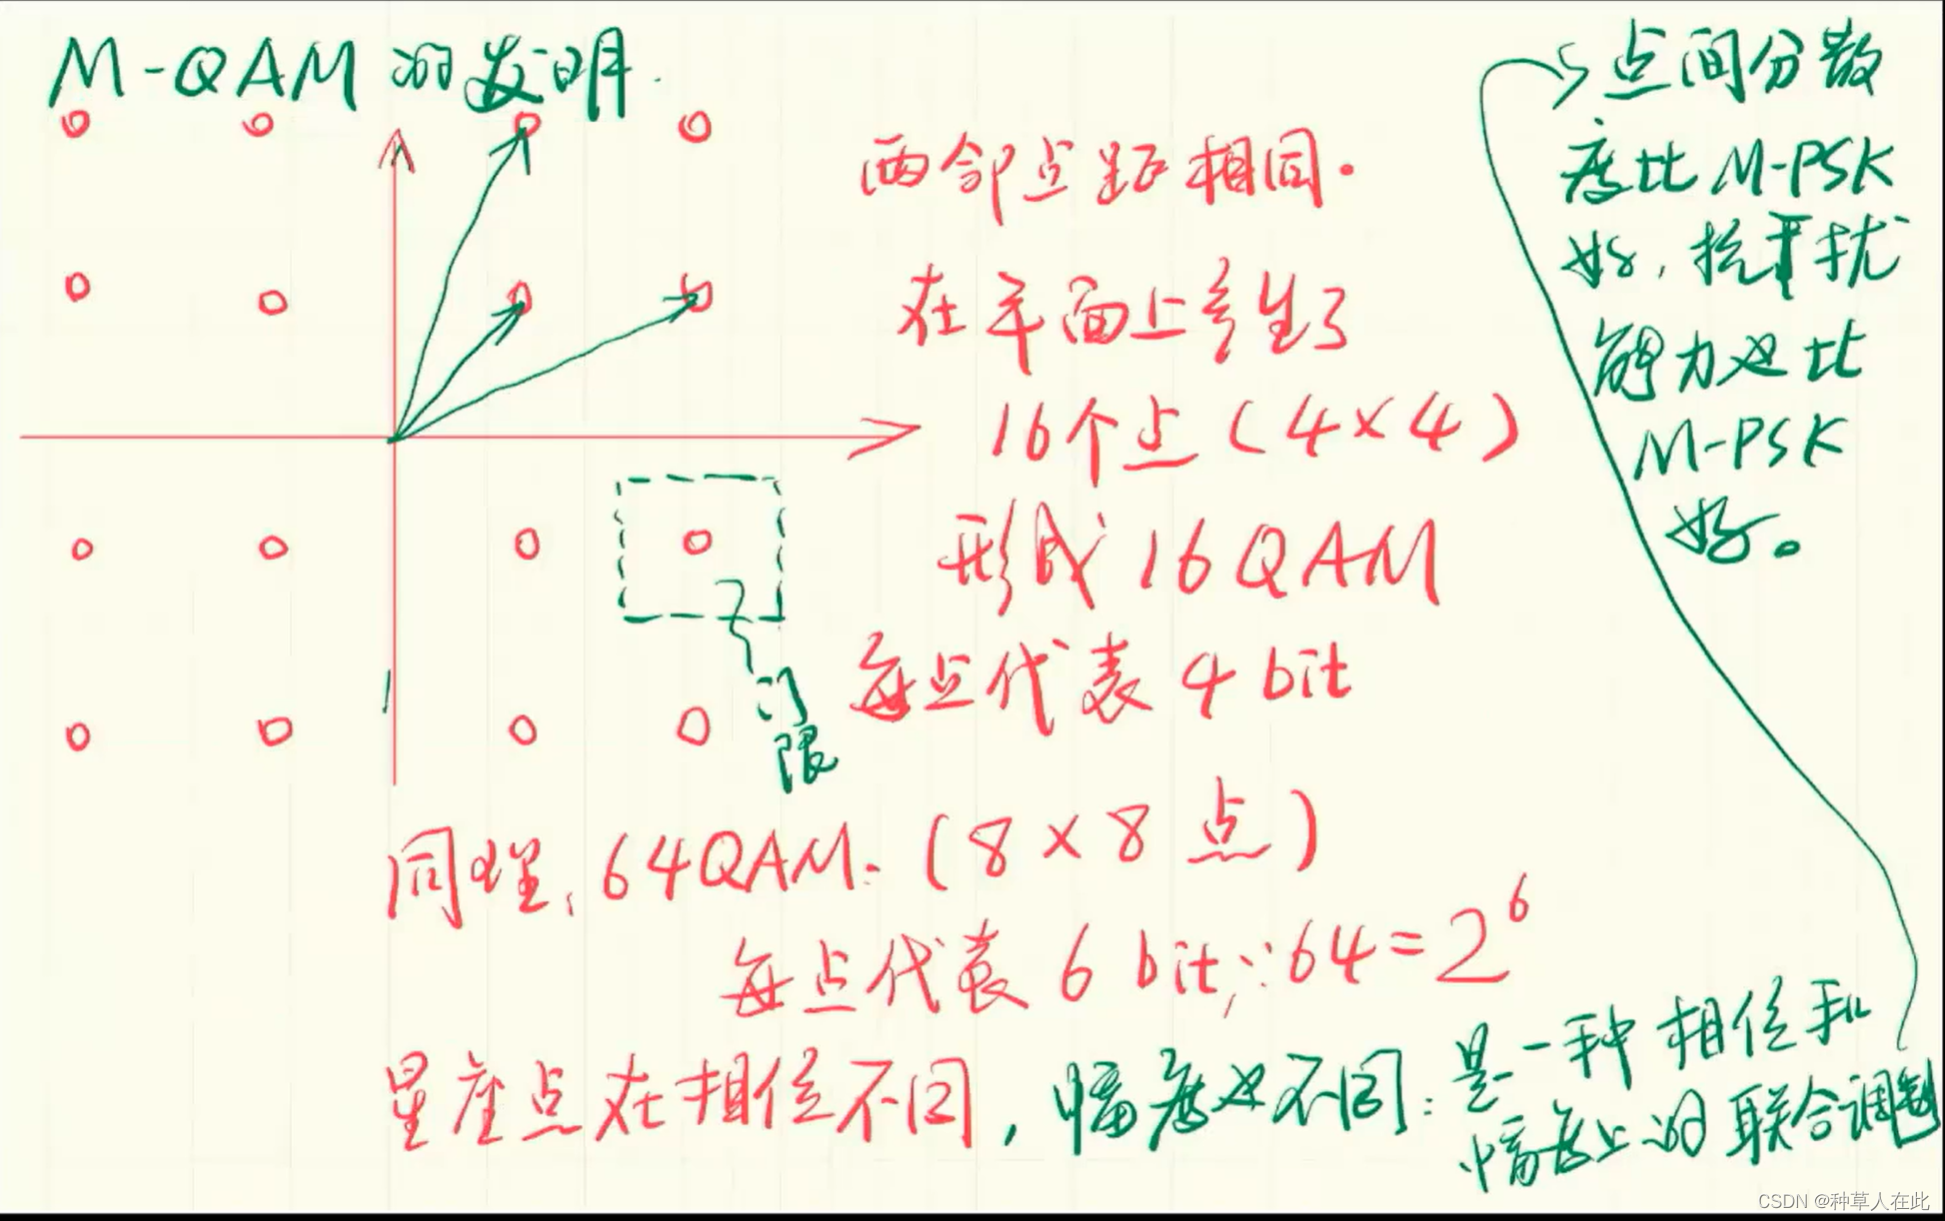 M-QAM的发明.
两邻点距相同.
在平面上产生了
16个点(4×4)
形成16QAM
每点代表4bit
门
限
同理,64QAM.(8×8点)
每点代表6 bit,∵64=2⁶
星座点在相位不同,幅度也不同:是一种相位和
幅度上的联合调制
点间分散
度比M-PSK
好,抗干扰
能力也比
M-PSK
好。
CSDN @种草人在此